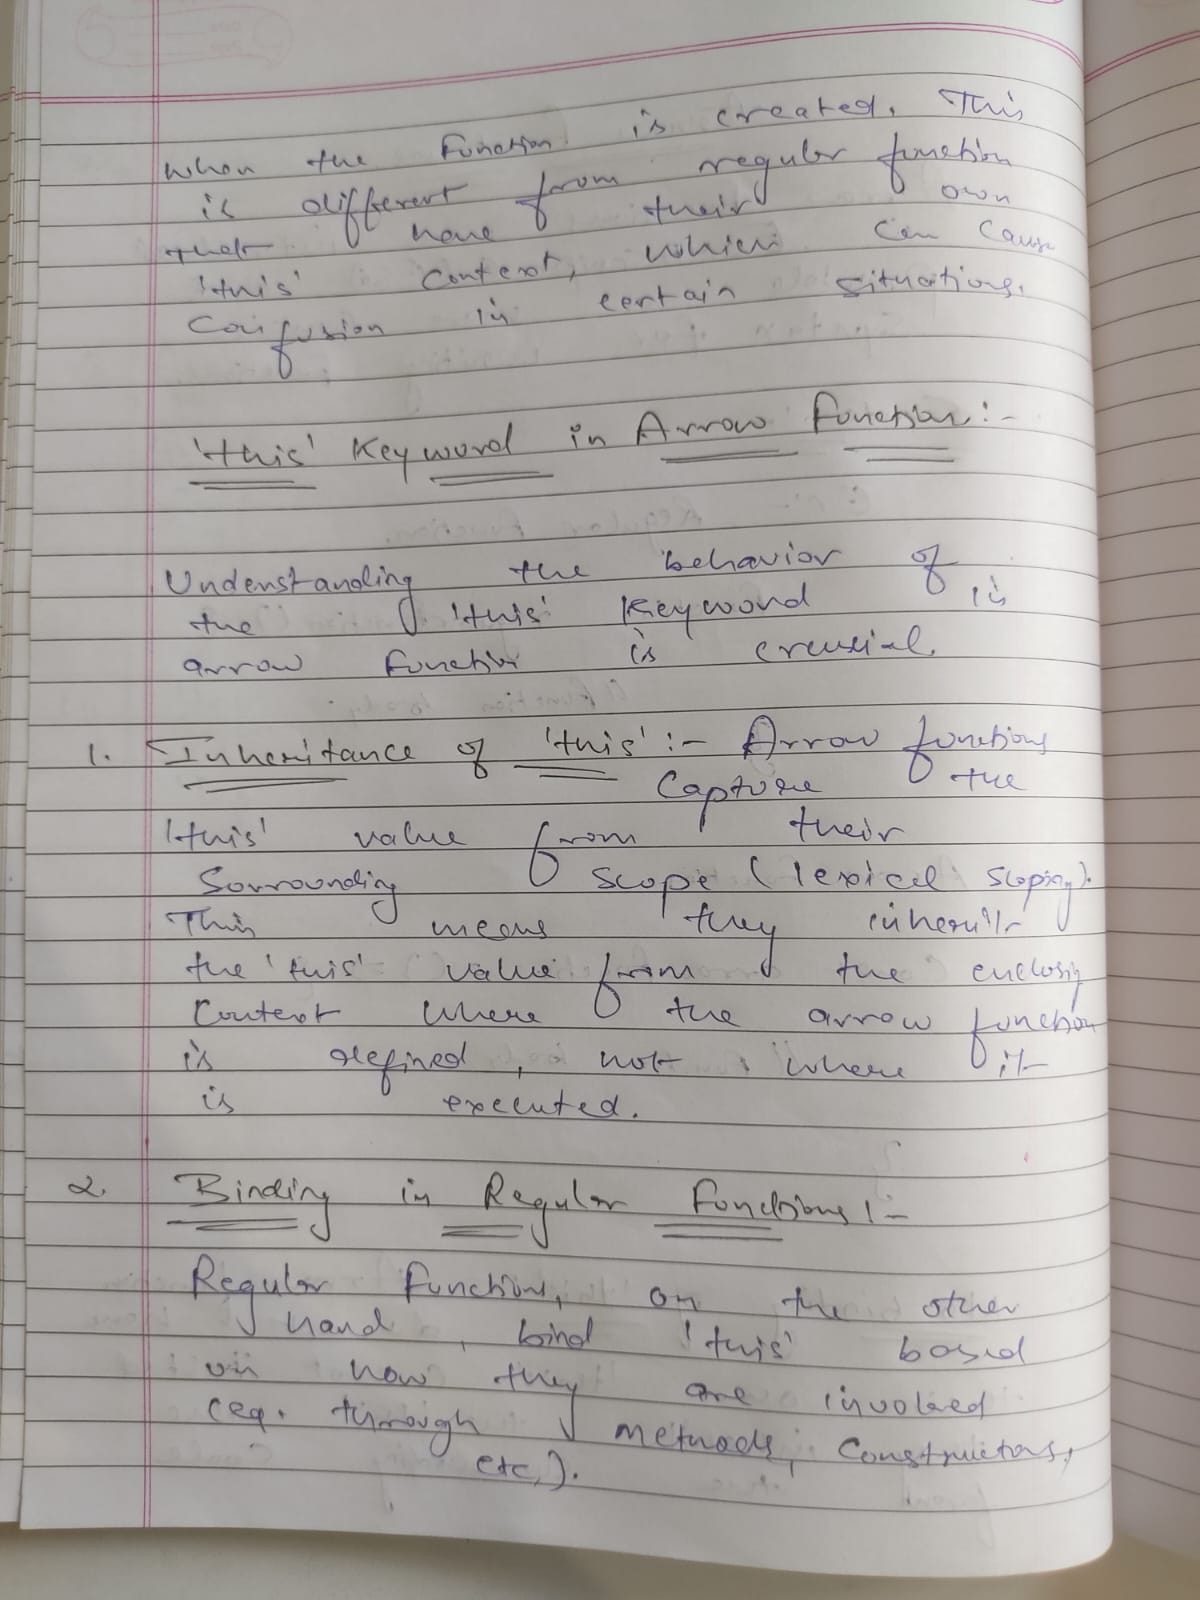 when the function is created. This
is different from regular function
that have their own
'this' context, which can cause
confusion in certain situations.
'this' Keyword in Arrow Function:-
Understanding the behavior of
the 'this' keyword in
arrow function is crucial.
1. Inheritance of 'this' :- Arrow functions
capture the
'this' value from their
Sorrounding scope (lexical scoping).
This means they inherit
the 'this' value from the enclosing
context where the arrow function
is defined, not where it
is executed.
2. Binding in Regular Functions :-
Regular functions, on the other
hand, bind 'this' based
on how they are invoked
(eg. through methods, constructors,
etc.).